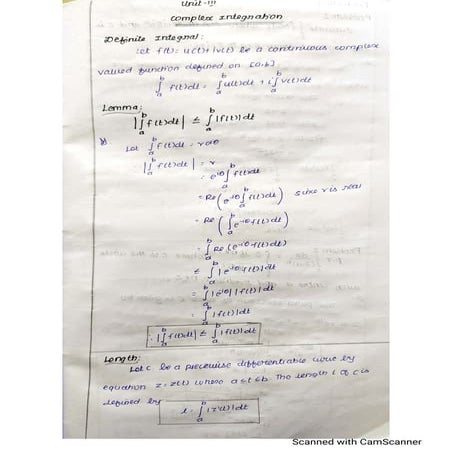 Unit - III
Complex Integration
Definite Integral:
Let f(t) = u(t)+iv(t) be a continuous complex
valued function defined on [a,b].
∫_a^b f(t)dt = ∫_a^b u(t)dt + i∫_a^b v(t)dt
Lemma:
|∫_a^b f(t)dt| ≤ ∫_a^b |f(t)|dt
Let ∫_a^b f(t)dt = re^iθ
|∫_a^b f(t)dt| = r
= e^-iθ ∫_a^b f(t)dt
= Re (e^-iθ ∫_a^b f(t)dt) since r is real
= Re (∫_a^b e^-iθ f(t)dt)
= ∫_a^b Re (e^-iθ f(t)dt)
≤ ∫_a^b |e^-iθ f(t)|dt
= ∫_a^b |e^-iθ| |f(t)|dt
= ∫_a^b |f(t)|dt
∴ |∫_a^b f(t)dt| ≤ ∫_a^b |f(t)|dt
Length:
Let C be a piecewise differentiable curve by
equation z = z(t) where a≤t≤b. The length l of C is
defined by
l = ∫_a^b |z'(t)|dt
Scanned with CamScanner